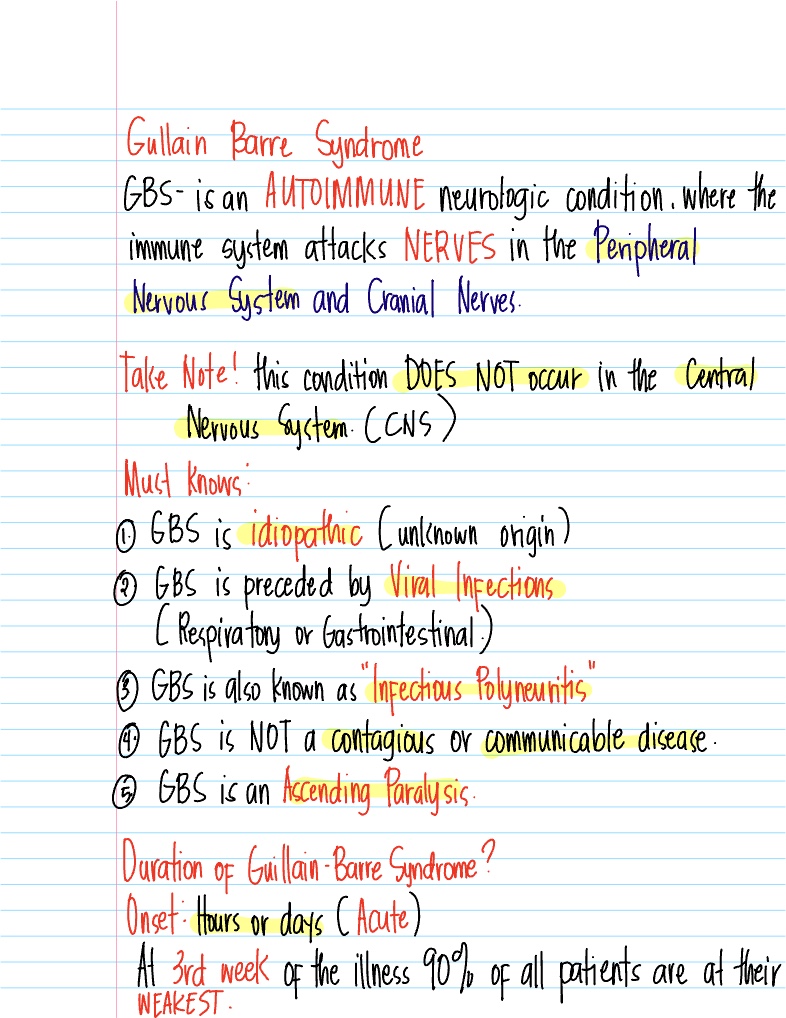 Gullain Barre Syndrome
GBS- is an AUTOIMMUNE neurologic condition. where the
immune system attacks NERVES in the Peripheral
Nervous System and Cranial Nerves.
Take Note! this condition DOES NOT occur in the Central
Nervous System. (CNS)
Must Knows:
① GBS is idiopathic (unknown origin)
② GBS is preceded by Viral Infections
(Respiratory or Gastrointestinal.)
③ GBS is also known as "Infectious Polyneuritis"
④ GBS is NOT a contagious or communicable disease.
⑤ GBS is an Ascending Paralysis.
Duration of Guillain-Barre Syndrome?
Onset: Hours or days (Acute)
At 3rd week of the illness 90% of all patients are at their
WEAKEST.